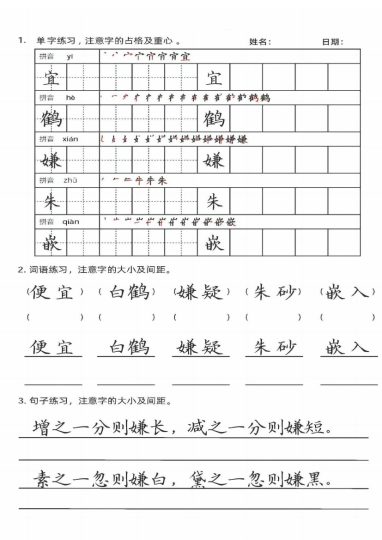 1. 单字练习，注意字的占格及重心。 姓名： 日期：
拼音 yí
宜 宜
拼音 hè
鹤 鹤
拼音 xián
嫌 嫌
拼音 zhū
朱 朱
拼音 qiàn
嵌 嵌
2. 词语练习，注意字的大小及间距。
（便宜）（白鹤）（嫌疑）（朱砂）（嵌入）
（ ）（ ）（ ）（ ）（ ）
便宜 白鹤 嫌疑 朱砂 嵌入
3. 句子练习，注意字的大小及间距。
增之一分则嫌长，减之一分则嫌短。
素之一忽则嫌白，黛之一忽则嫌黑。